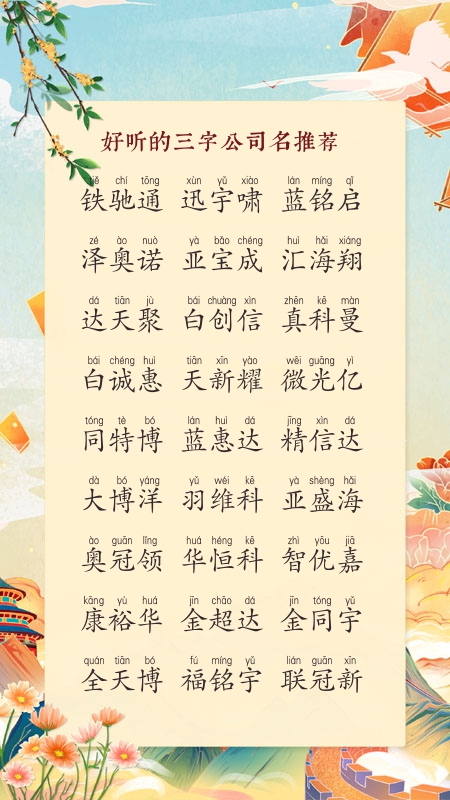 好听的三字公司名推荐
tiě chí tōng xùn yǔ xiào lán míng qǐ
铁驰通 迅宇啸 蓝铭启
zé ào nuò yà bǎo chéng huì hǎi xiáng
泽奥诺 亚宝成 汇海翔
dá tiān jù bái chuàng xìn zhēn kē màn
达天聚 白创信 真科曼
bái chéng huì tiān xīn yào wēi guāng yì
白诚惠 天新耀 微光亿
tóng tè bó lán huì dá jīng xìn dá
同特博 蓝惠达 精信达
dà bó yáng yǔ wéi kē yà shèng hǎi
大博洋 羽维科 亚盛海
ào guān lǐng huá héng kē zhì yōu jiā
奥冠领 华恒科 智优嘉
kāng yù huá jīn chāo dá jīn tóng yǔ
康裕华 金超达 金同宇
quán tiān bó fú míng yǔ lián guān xīn
全天博 福铭宇 联冠新